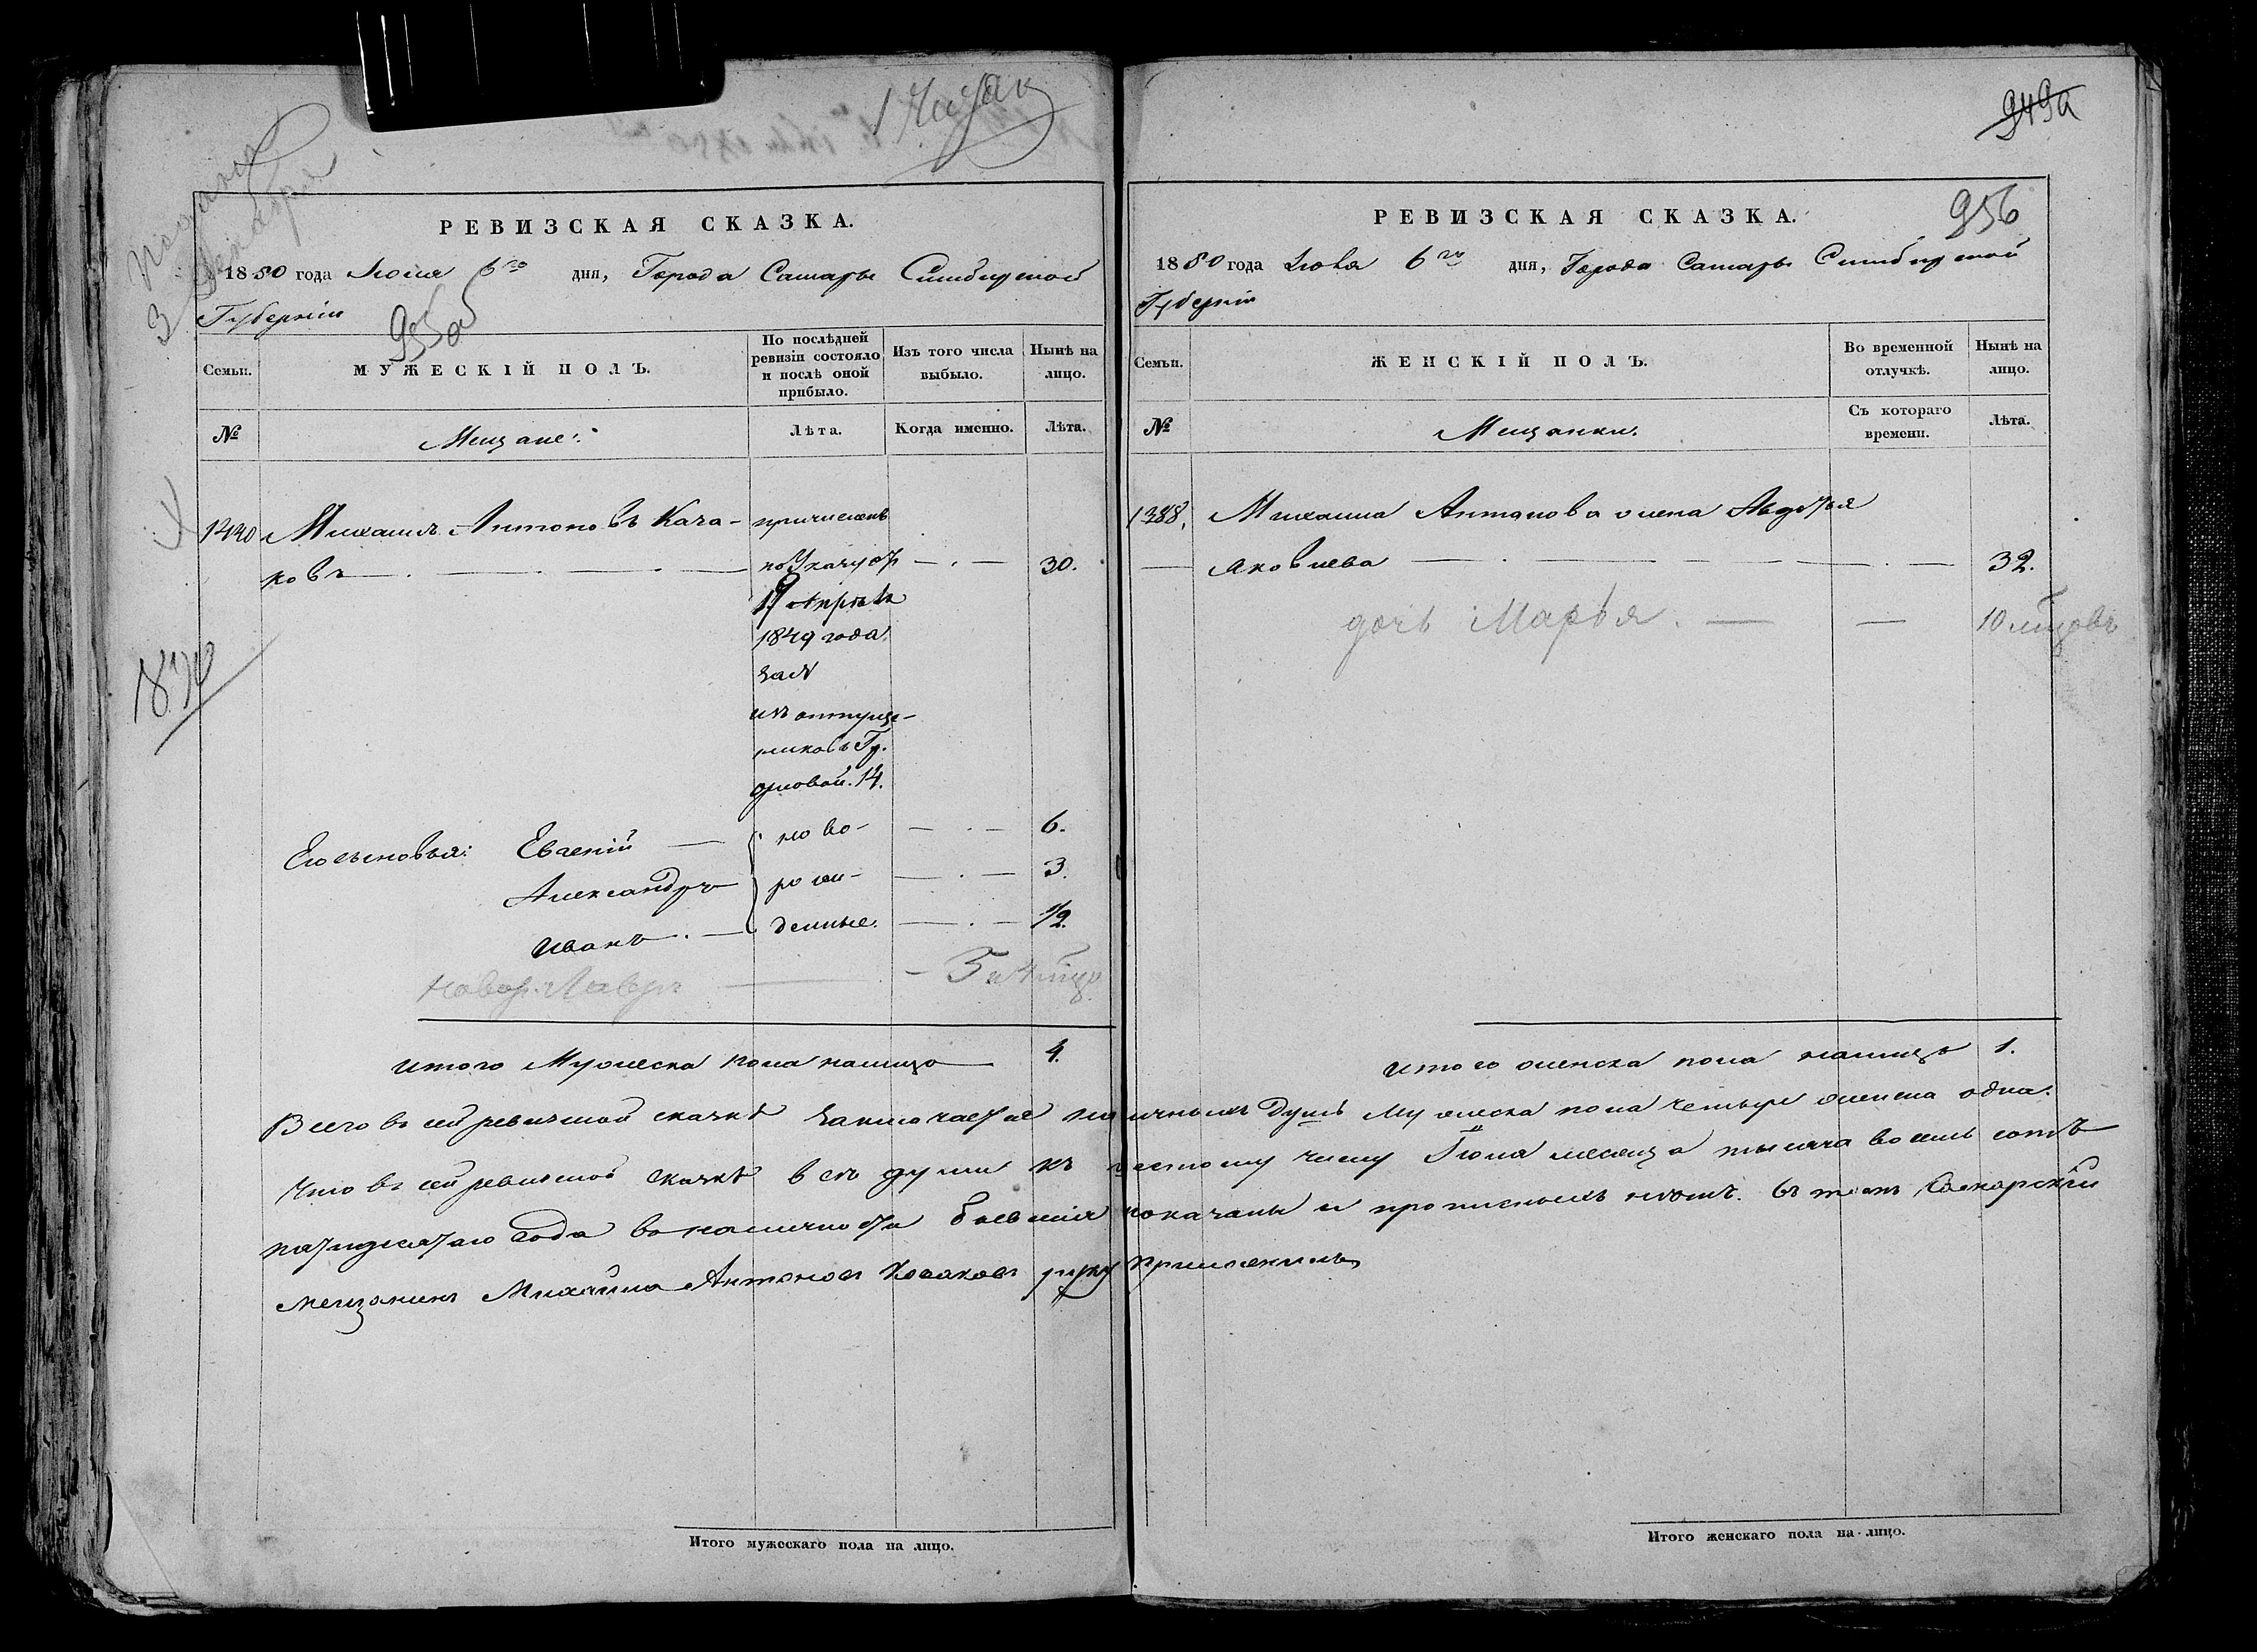 949а
956
РЕВИЗСКАЯ СКАЗКА.
1850 года Іюля 6го дня, Города Самары Симбирской
Губерніи
955а
Семьи.
МУЖЕСКІЙ ПОЛЪ.
По послѣдней ревизіи состояло и послѣ оной прибыло.
Изъ того числа выбыло.
Нынѣ на лицо.
№
Мещане:
Лѣта.
Когда именно.
Лѣта.
1440 Михаилъ Антоновъ Каза-
ковъ 30.
причисленъ
по Указу
Апрѣля
1849 года
за №
изъ отпуще-
14.
Его сыновья: Евгеній 6.
Александръ 3.
Иванъ 1/2.
ново-
рож-
денные.
новор. Лавръ
итого Мужеска пола налицо 4.
РЕВИЗСКАЯ СКАЗКА.
1850 года Іюля 6го дня, Города Самары Симбирской
Губерніи
Семьи.
ЖЕНСКІЙ ПОЛЪ.
Во временной отлучкѣ.
Нынѣ на лицо.
№
Мещанки.
Съ котораго времени.
Лѣта.
1388. Михаила Антонова жена Авдотья
Яковлева 32.
дочь Марья. 10
итого женска пола налицо 1.
Всего въ сей ревизской сказкѣ заключается наличныхъ душъ мужеска пола четыре женска одна.
Что въ сей ревизской сказкѣ всѣ души къ шестому числу Іюля месяца тысяча восемь сотъ
пятидесятаго года въ наличности бывшія показаны и прописныхъ нѣтъ. въ томъ Самарскій
мещанинъ Михайла Антоновъ Козаковъ руку приложилъ
Итого мужескаго пола на лицо.
Итого женскаго пола на лицо.